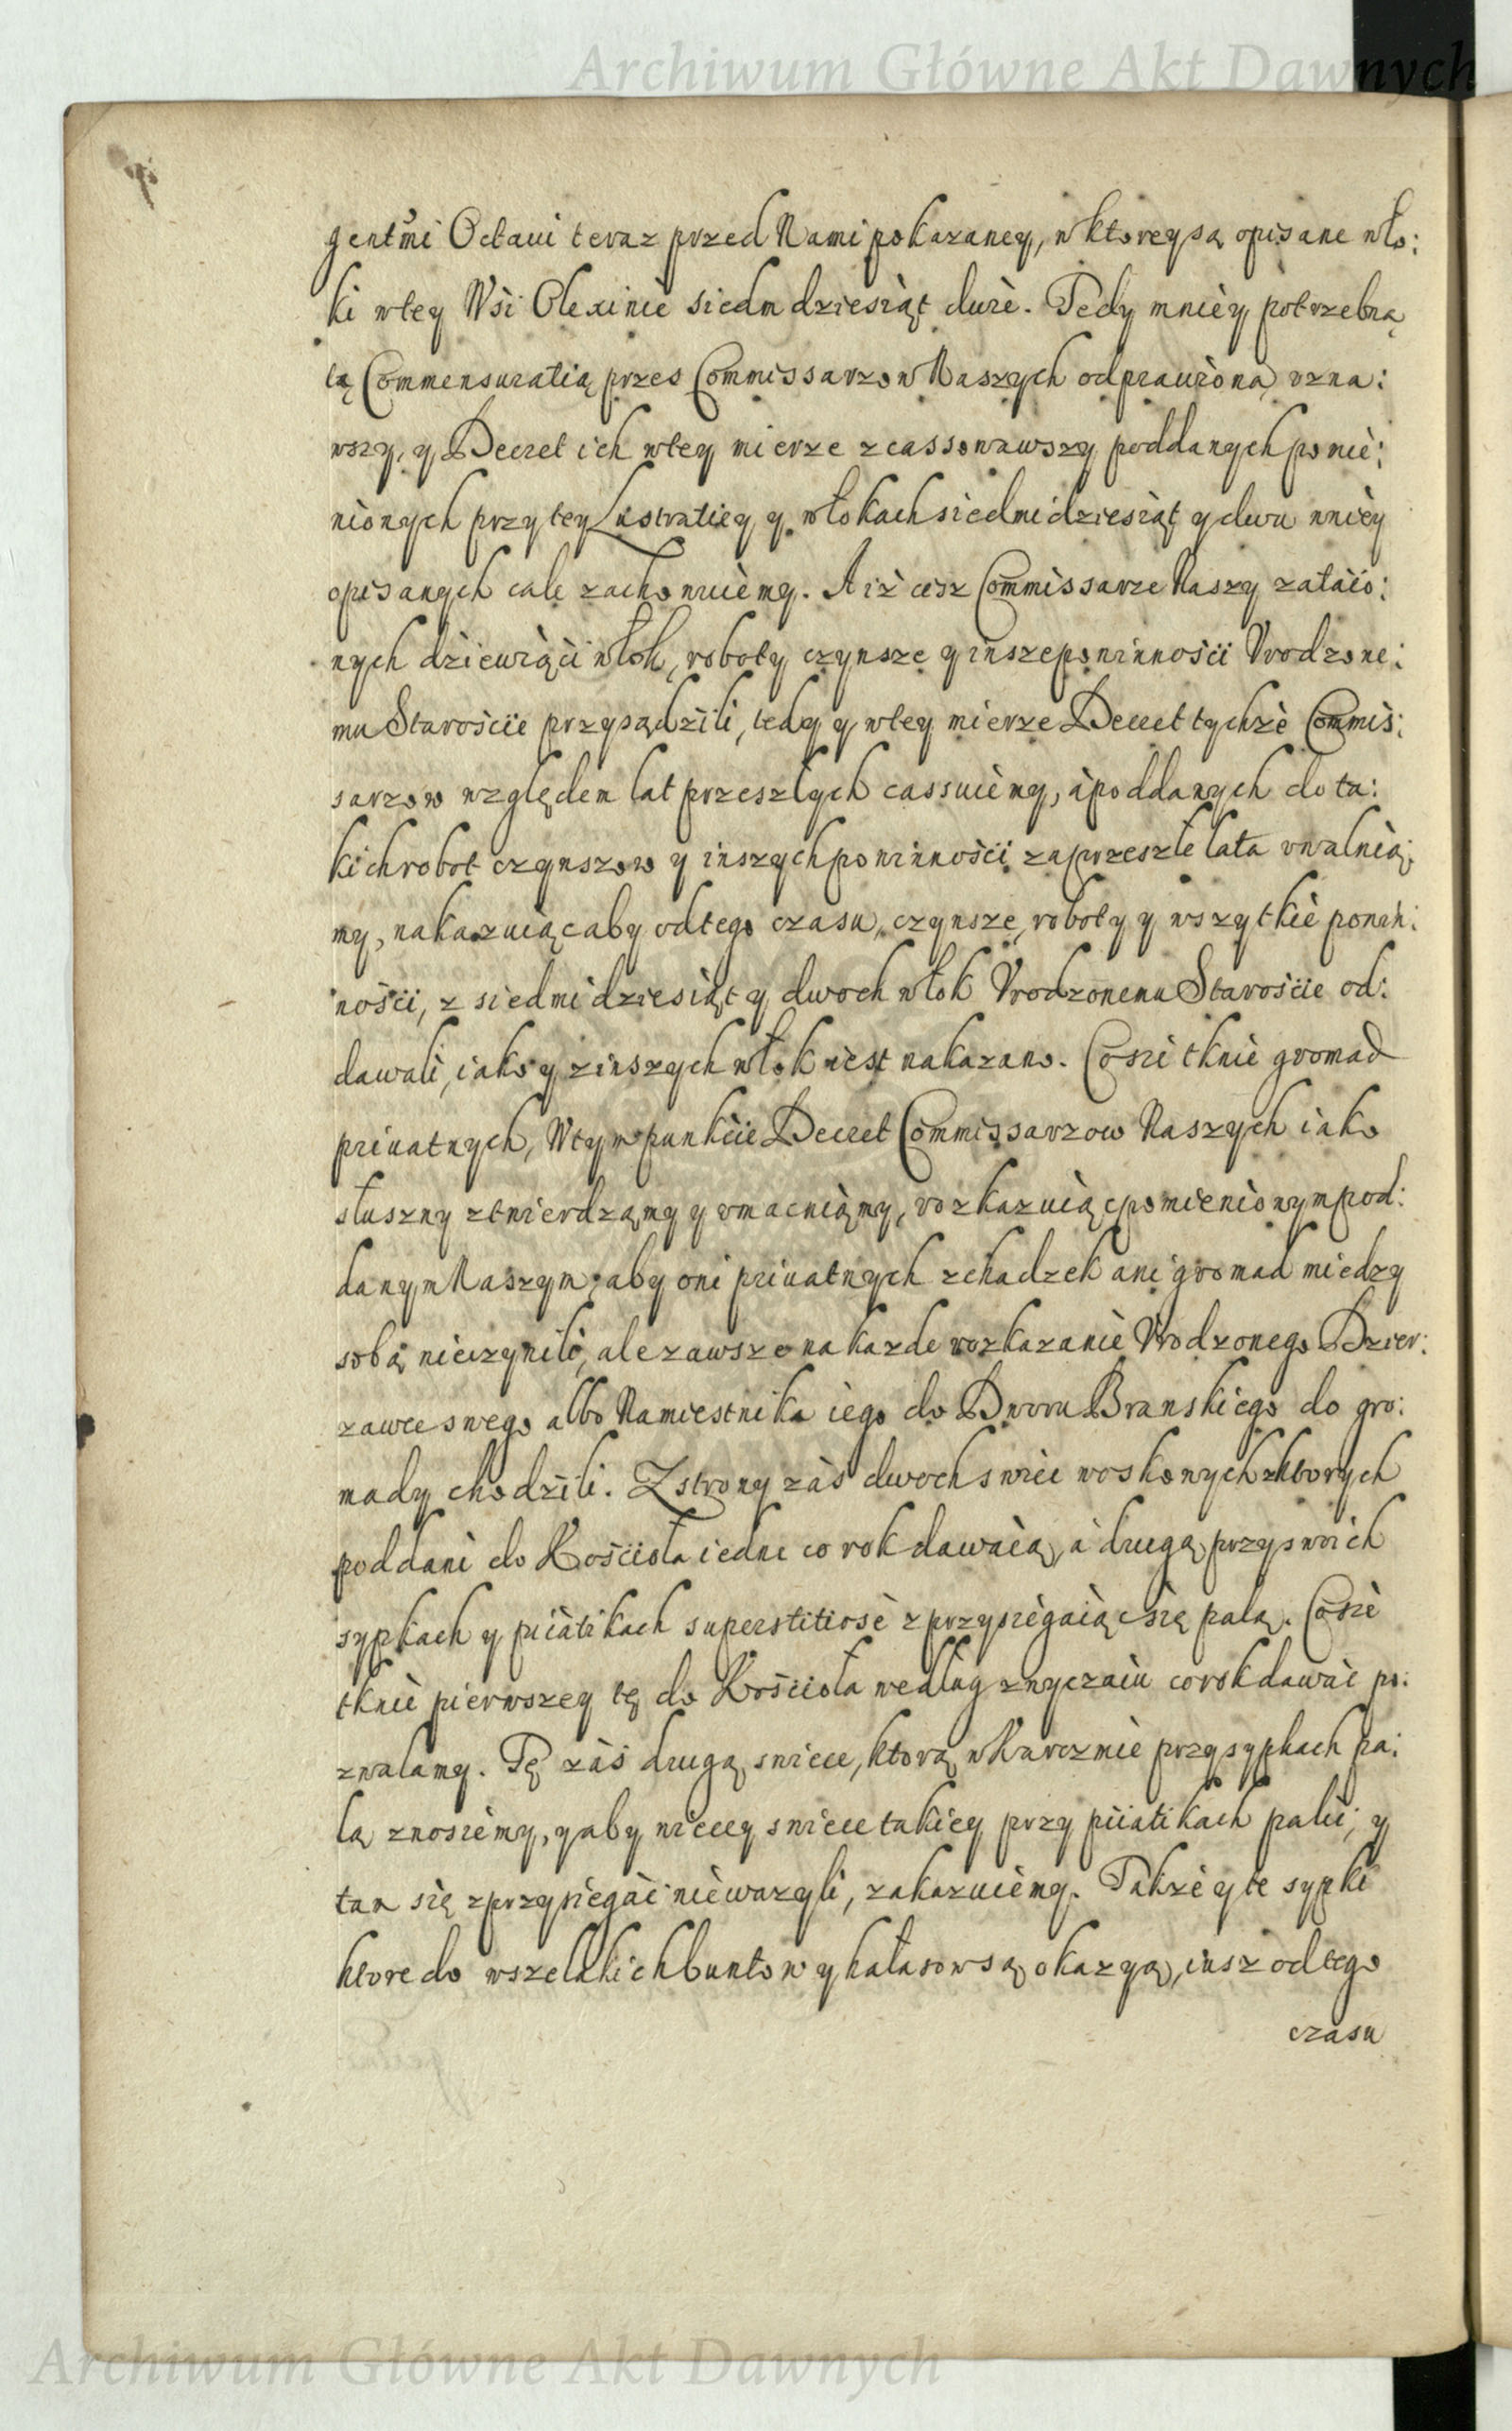 Archiwum Główne Akt Dawnych
gentmi Octaui teraz przed Nami pokazaney, w ktorey są opisane wło:
ki wtey Wsi Olexinie siedm dziesiąt dwie. Tedy mniey potrzebną
tą Commensuratią przes Commissarzow Naszych odprawioną vzna:
wszy, y Decret ich wtey mierze zcassowawszy poddanych pomie:
nionych przy tey Lustratiey y włokach siedmidziesiąt y dwu wniey
opisanych cale zachowuiemy. A iż ciż Commissarze Naszy zataio:
nych dziewiąci włok, roboty czynsze y insze powinności Vrodzone:
mu Starościе przysądzili, tedy y wtey mierze Decret tychże Commis:
sarzow względem lat przeszłych cassuiemy, a poddanych do ta:
kich robot czynszow y inszych powinności za przeszłe lata vwalnia:
my, nakazuiąc aby od tego czasu, czynsze, roboty y wszytkie powin:
ności, z siedmidziesiąt y dwoch włok Vrodzonemu Starościе od:
dawali, iako y zinszych włok iest nakazano. Co się tknie gromad
priuatnych, Wtym punkcie Decret Commissarzow Naszych iako
słuszny ztwierdzamy y vmacniamy, rozkazuiąc pomienionym pod:
danym Naszym, aby oni priuatnych schadzek ani gromad miedzy
sobą nieczynili, ale zawsze na kazde rozkazanie Vrodzonego Dzier:
zawce swego albo Namiestnika iego do Dworu Branskiego do gro:
mady chodzili. Z strony zaś dwoch swiec woskowych zktorych
poddani do Kościoła iedne co rok dawaią, a drugą przy swoich
sypkach y piiatikach superstitiose zprzysiegaiąc się palą. Co się
tknie pierwszey tę do Kościoła według zwyczaiu co rok dawać po:
zwalamy. Tę zaś drugą swiece, ktorą w Karczmie przy sypkach pa:
lą znosiemy, y aby wiecey swiece takiey przy piiatikach palić, y
tam się zprzysiegać nieważyli, zakazuiemy. Także y te sypki
ktore do wszelakich buntow y hałasow są okazyą, iusz od tego
czasu
Archiwum Główne Akt Dawnych